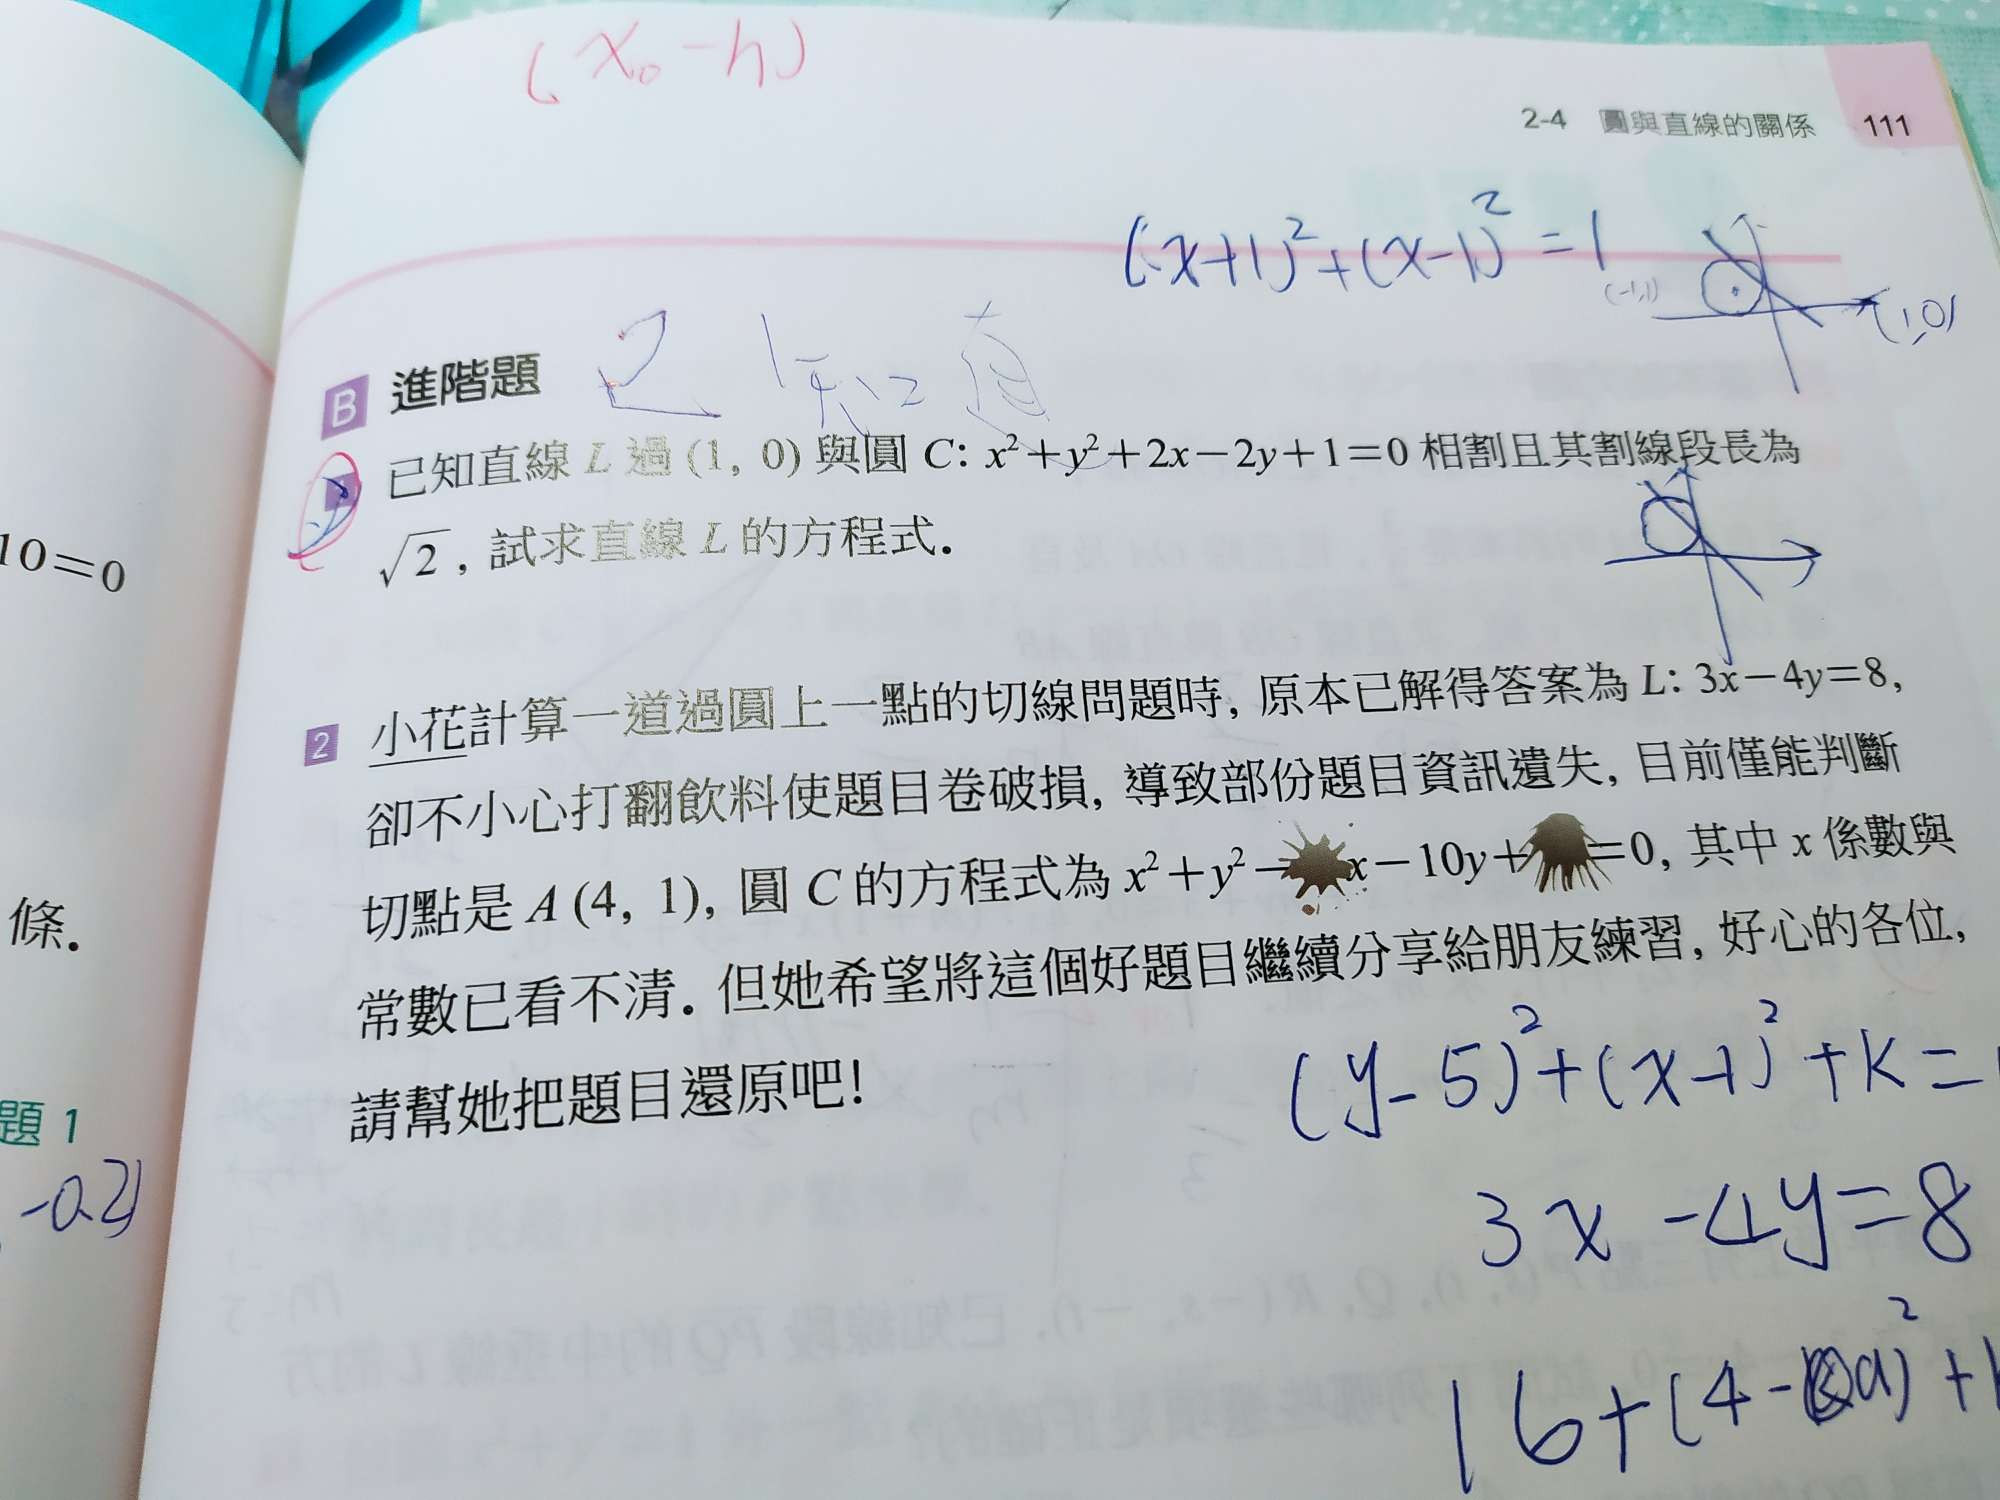 (x₀-h)
2-4 圓與直線的關係 111
(x+1)²+(x-1)²=1
(-1,1)
(1,0)
B 進階題
已知直線 L 過 (1, 0) 與圓 C: x²+y²+2x-2y+1=0 相割且其割線段長為
√2, 試求直線 L 的方程式.
10=0
2 小花計算一道過圓上一點的切線問題時, 原本已解得答案為 L: 3x-4y=8,
卻不小心打翻飲料使題目卷破損, 導致部份題目資訊遺失, 目前僅能判斷
切點是 A (4, 1), 圓 C 的方程式為 x²+y²- x-10y+ =0, 其中 x 係數與
條.
常數已看不清. 但她希望將這個好題目繼續分享給朋友練習, 好心的各位,
請幫她把題目還原吧!
題 1
(y-5)²+(x-1)²+k=
3x-4y=8
16+(4-a)²+